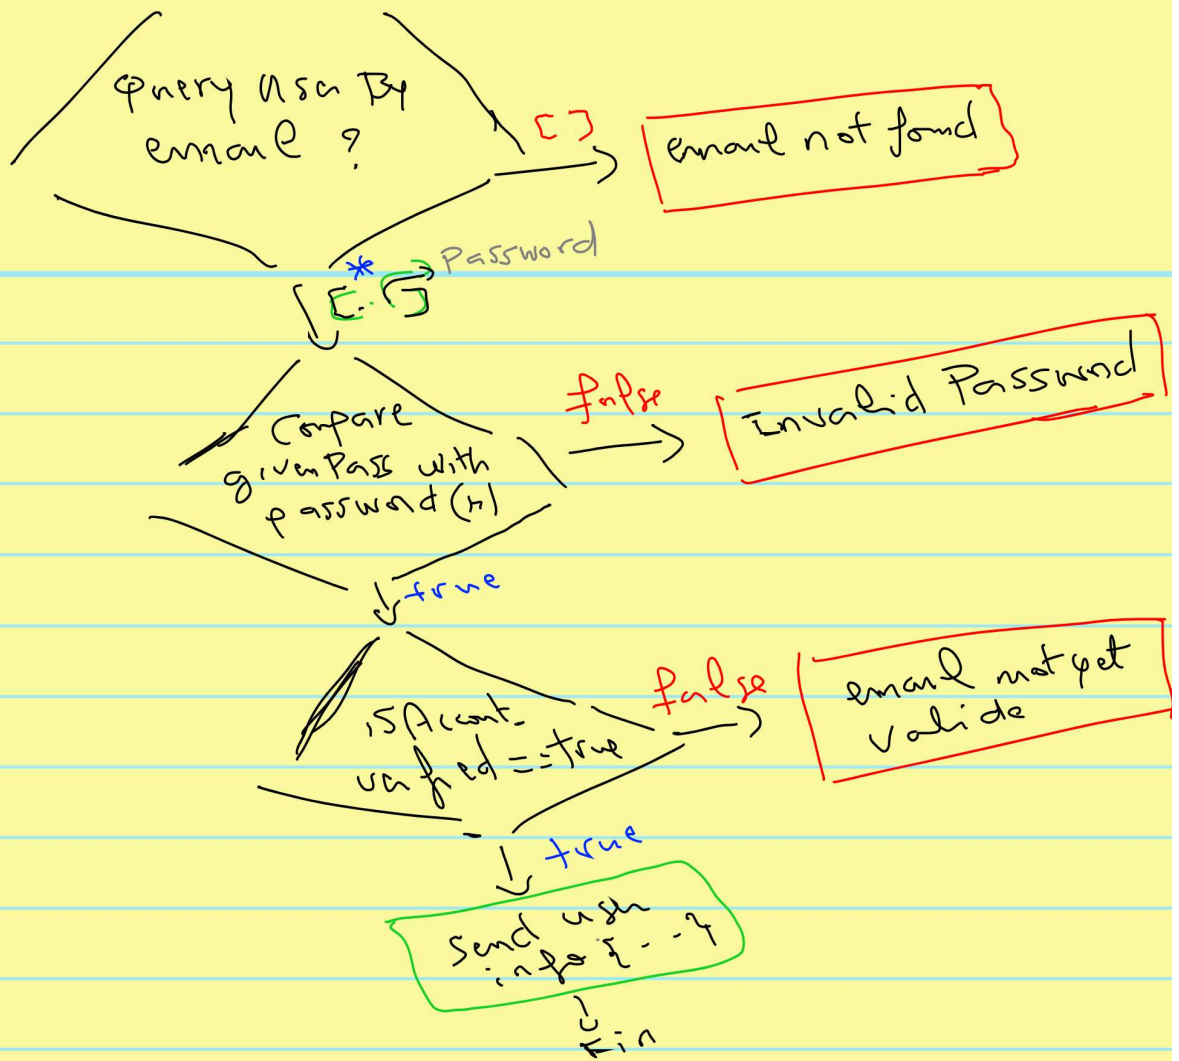 Query User By
email ?
[ ]
email not found
*
[..]
Password
Compare
givenPass with
password(H)
false
Invalid Password
true
isAccount_
verified==true
false
email not yet
valide
true
Send user
info {--}
Fin